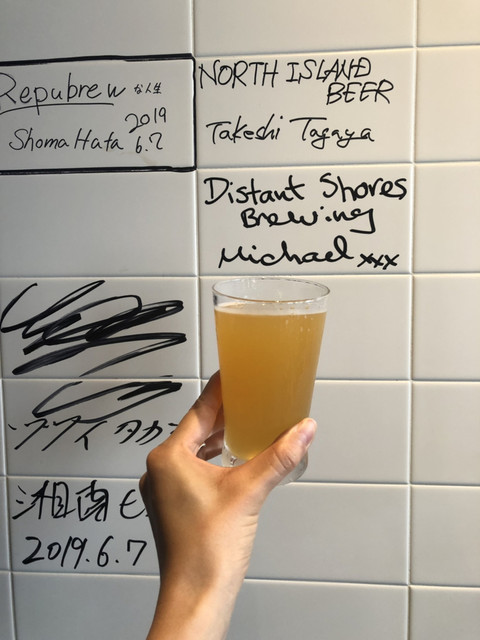 Repubrew な人生
2019
Shoma Hata 6.7
NORTH ISLAND
BEER
Takeshi Tagaya
Distant Shores
Brewing
Michael xxx
湘南
2019.6.7